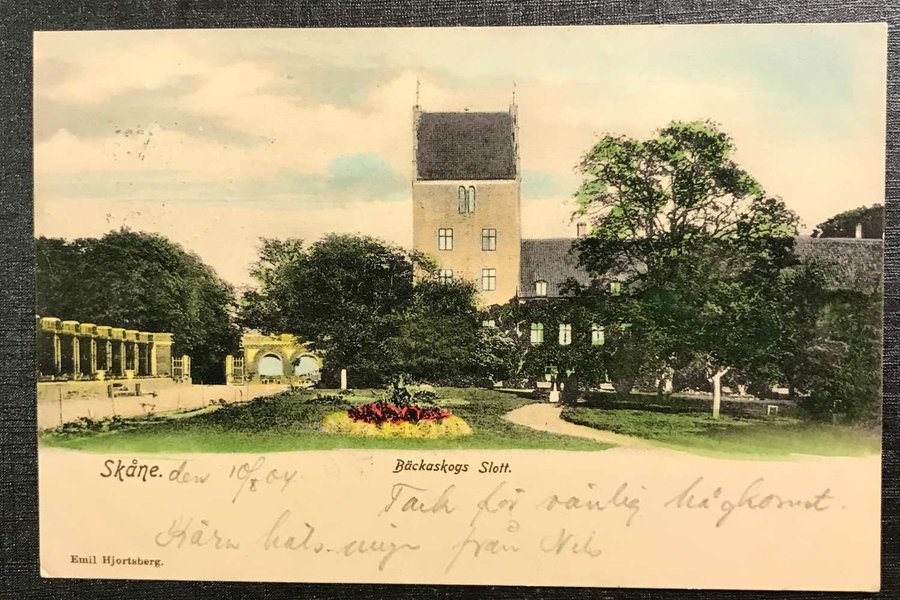 Skåne. den 10/8 04
Bäckaskogs Slott.
Tack för vänlig hågkomst.
Kära från Nils
Emil Hjortsberg.